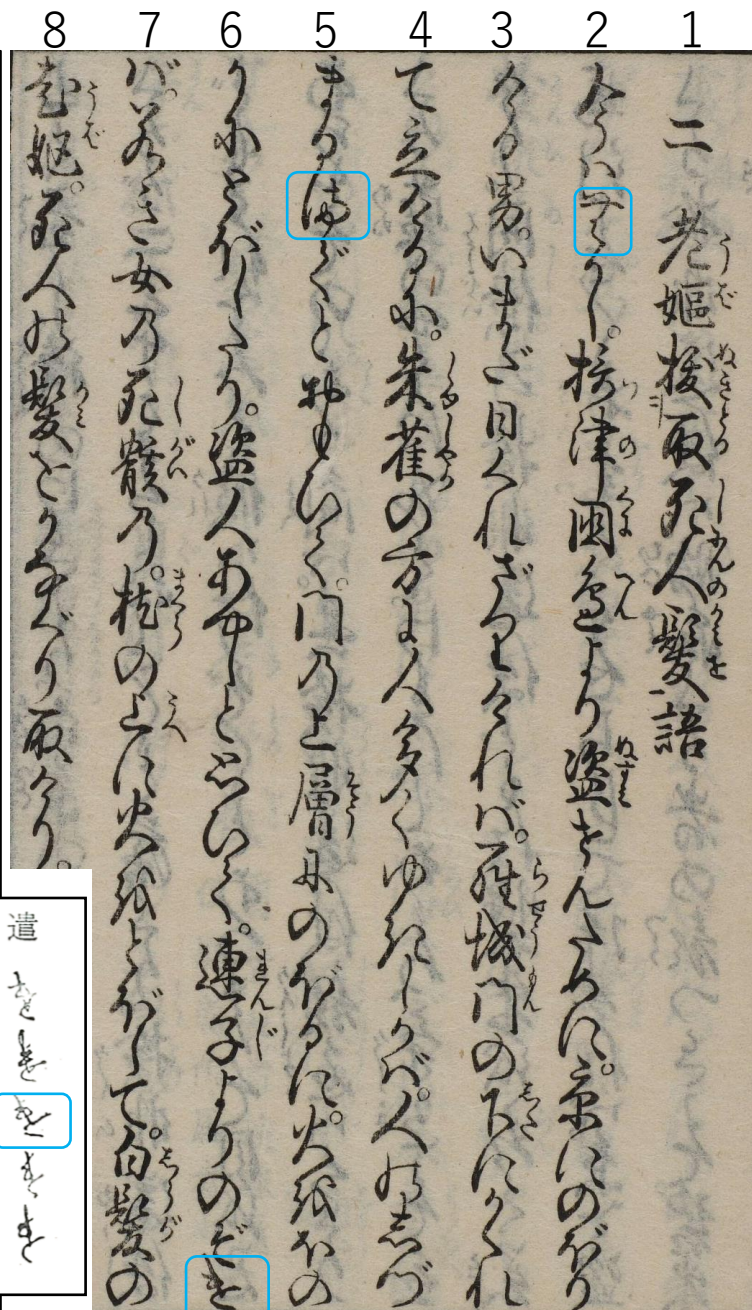 8 7 6 5 4 3 2 1
二 老嫗抜取死人髪語
今ハむかし。摂津国辺より盗せんために。京にのぼり
ける男。いまだ日くれざりければ。羅城門の下にかくれ
て立けるに。朱雀の方に人多くゆきしかば。人のしづ
まるまでとおもひて。門の上層にのぼるに。火をほの
かにとぼしたり。盗人あやしと思ひて。連子よりのぞけ
ば。若き女の死骸の。枕の上に火をとぼして。白髪の
老嫗。死人の髪をかなぐり取けり。
遣